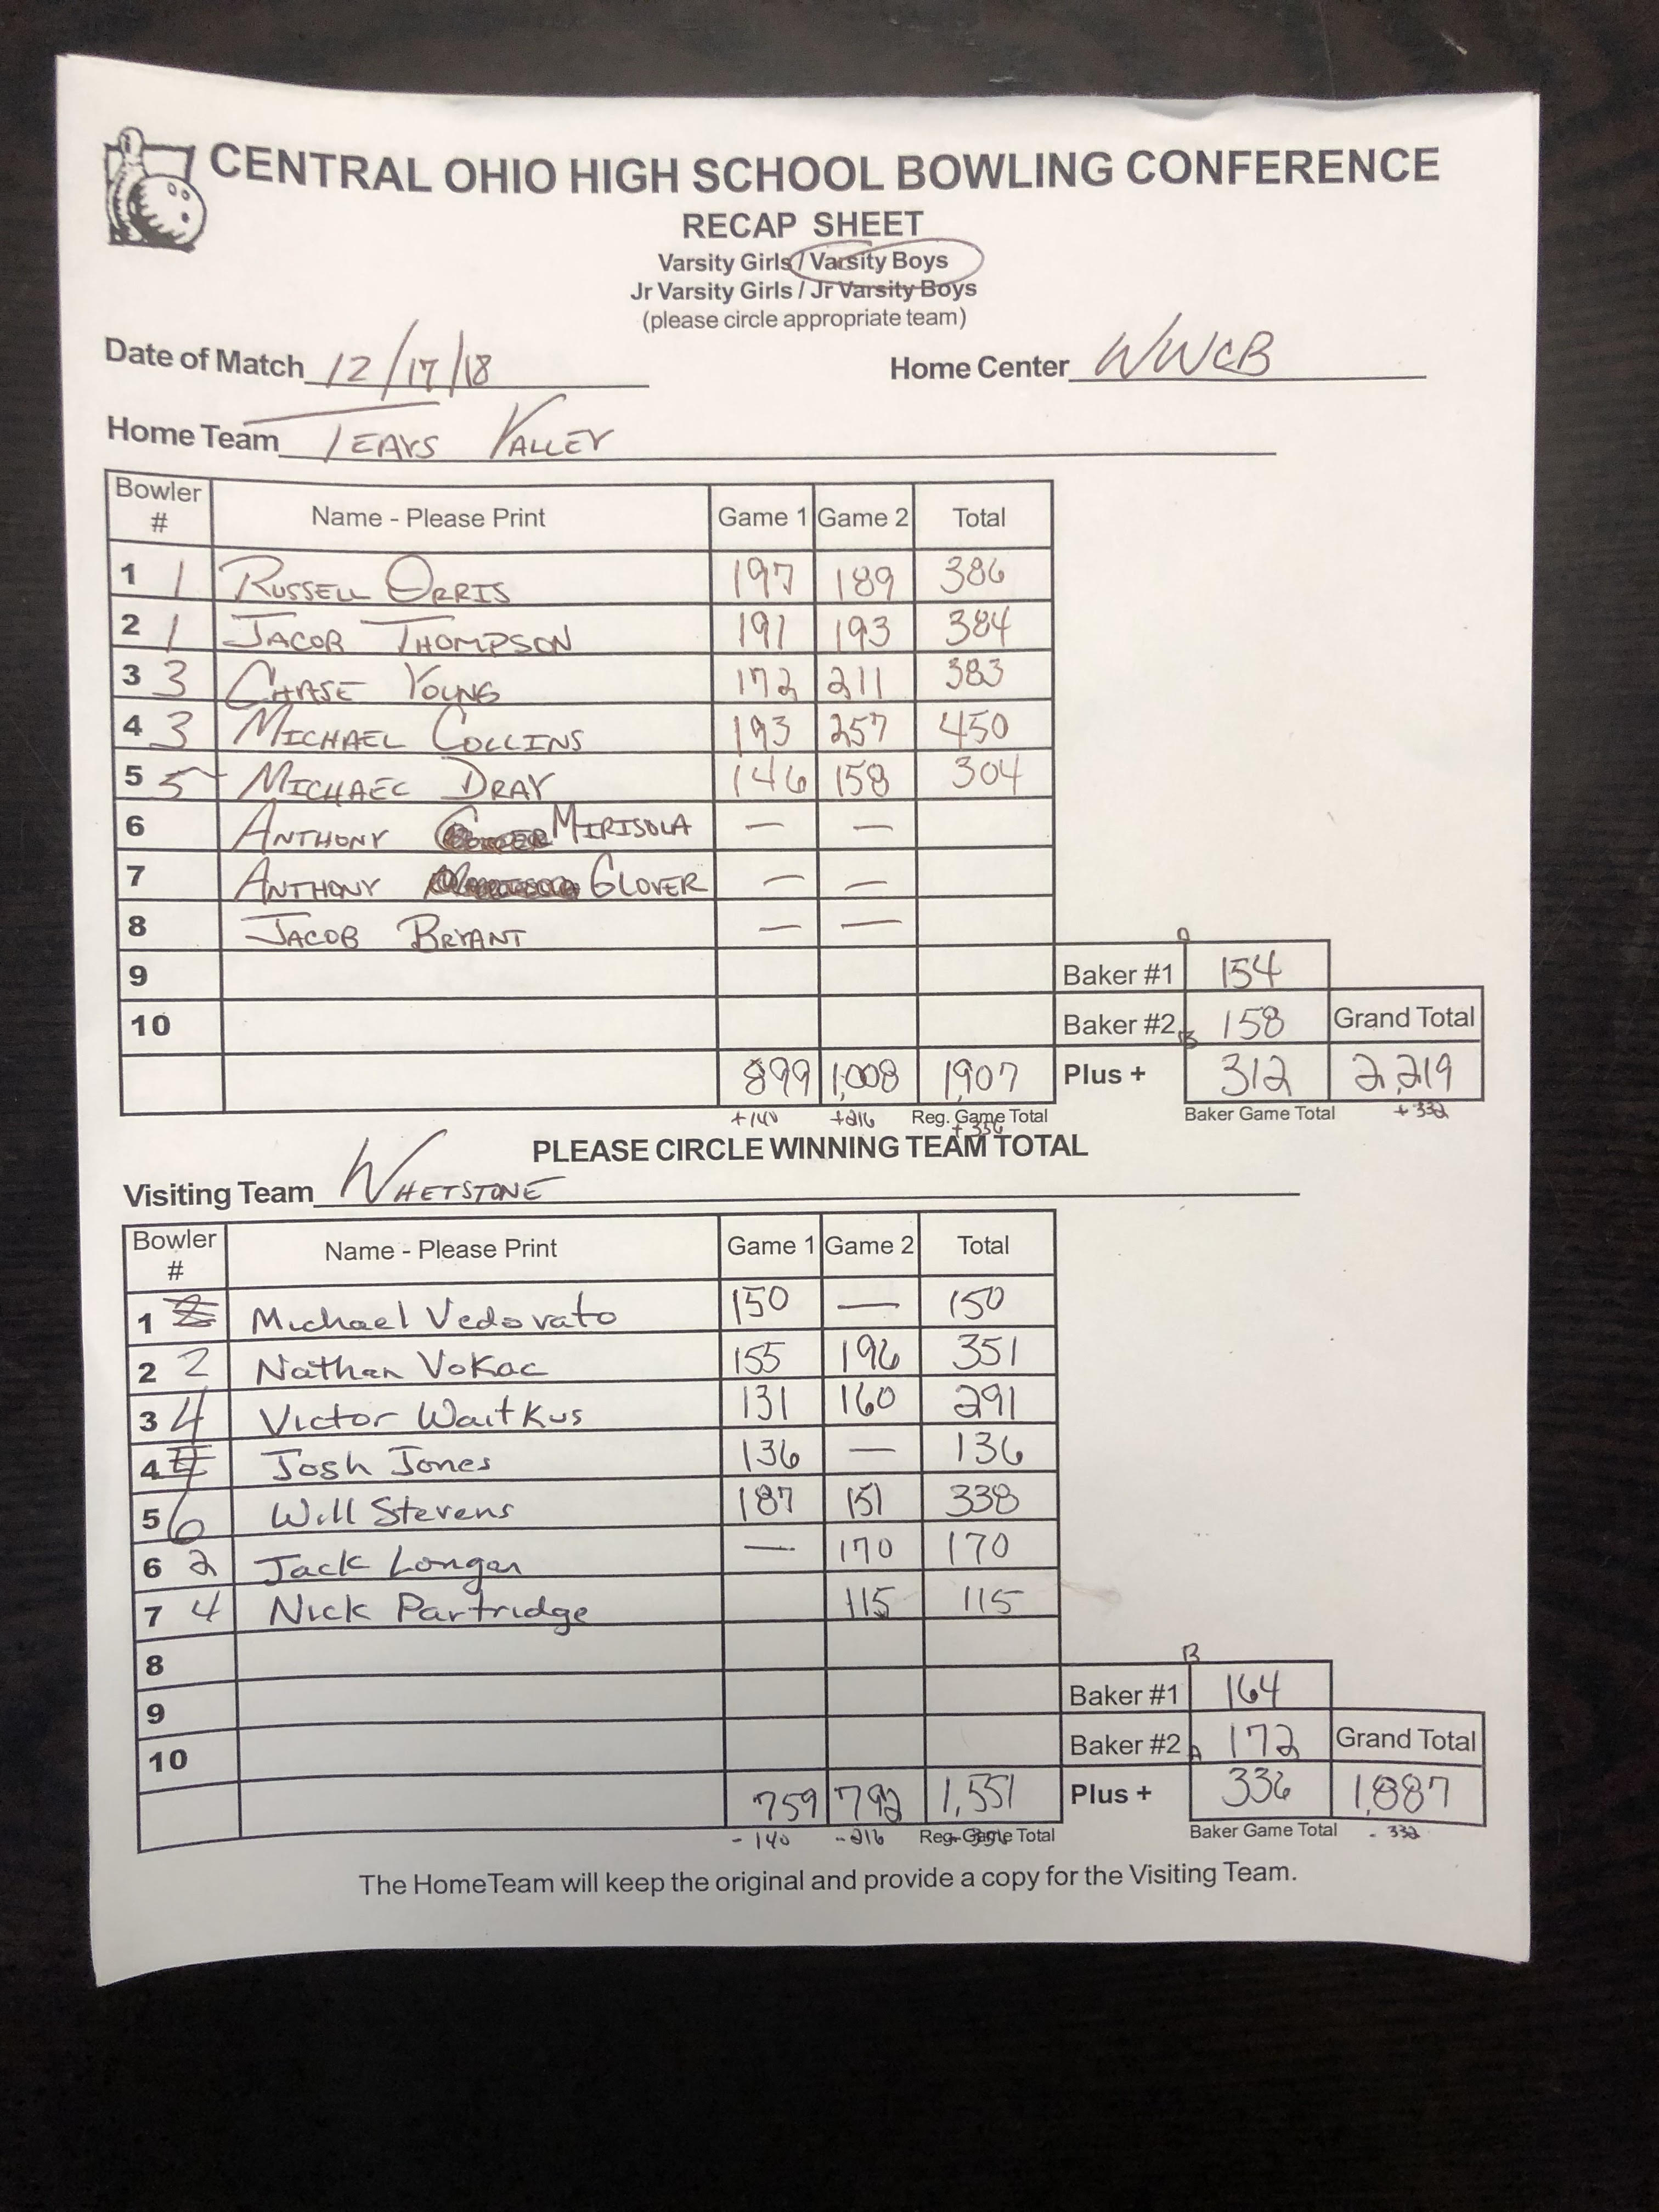 CENTRAL OHIO HIGH SCHOOL BOWLING CONFERENCE
RECAP SHEET
Varsity Girls / Varsity Boys
Jr Varsity Girls / Jr Varsity Boys
(please circle appropriate team)
Date of Match 12/17/18 Home Center WWCB
Home Team TEAYS VALLEY
Bowler # Name - Please Print Game 1 Game 2 Total
1 1 RUSSELL ORRIS 197 189 386
2 1 JACOB THOMPSON 191 193 384
3 3 CHASE YOUNG 172 211 383
4 3 MICHAEL COLLINS 193 257 450
5 5 MICHAEL DRAY 146 158 304
6 ANTHONY MIRISOLA — —
7 ANTHONY GLOVER — —
8 JACOB BRYANT — —
9 Baker #1 A 154
10 Baker #2 B 158 Grand Total
899 1,008 1,907 Plus + 312 2,219
+140 +216 Reg. Game Total +356 Baker Game Total +332
PLEASE CIRCLE WINNING TEAM TOTAL
Visiting Team WHETSTONE
Bowler # Name - Please Print Game 1 Game 2 Total
1 Michael Vedovato 150 — 150
2 2 Nathan Vokac 155 196 351
3 4 Victor Waitkus 131 160 291
4 Josh Jones 136 — 136
5 6 Will Stevens 187 151 338
6 2 Jack Longer — 170 170
7 4 Nick Partridge 115 115
8
9 Baker #1 B 164
10 Baker #2 A 172 Grand Total
759 792 1,551 Plus + 336 1,887
-140 -216 Reg. Game Total -356 Baker Game Total -332
The HomeTeam will keep the original and provide a copy for the Visiting Team.